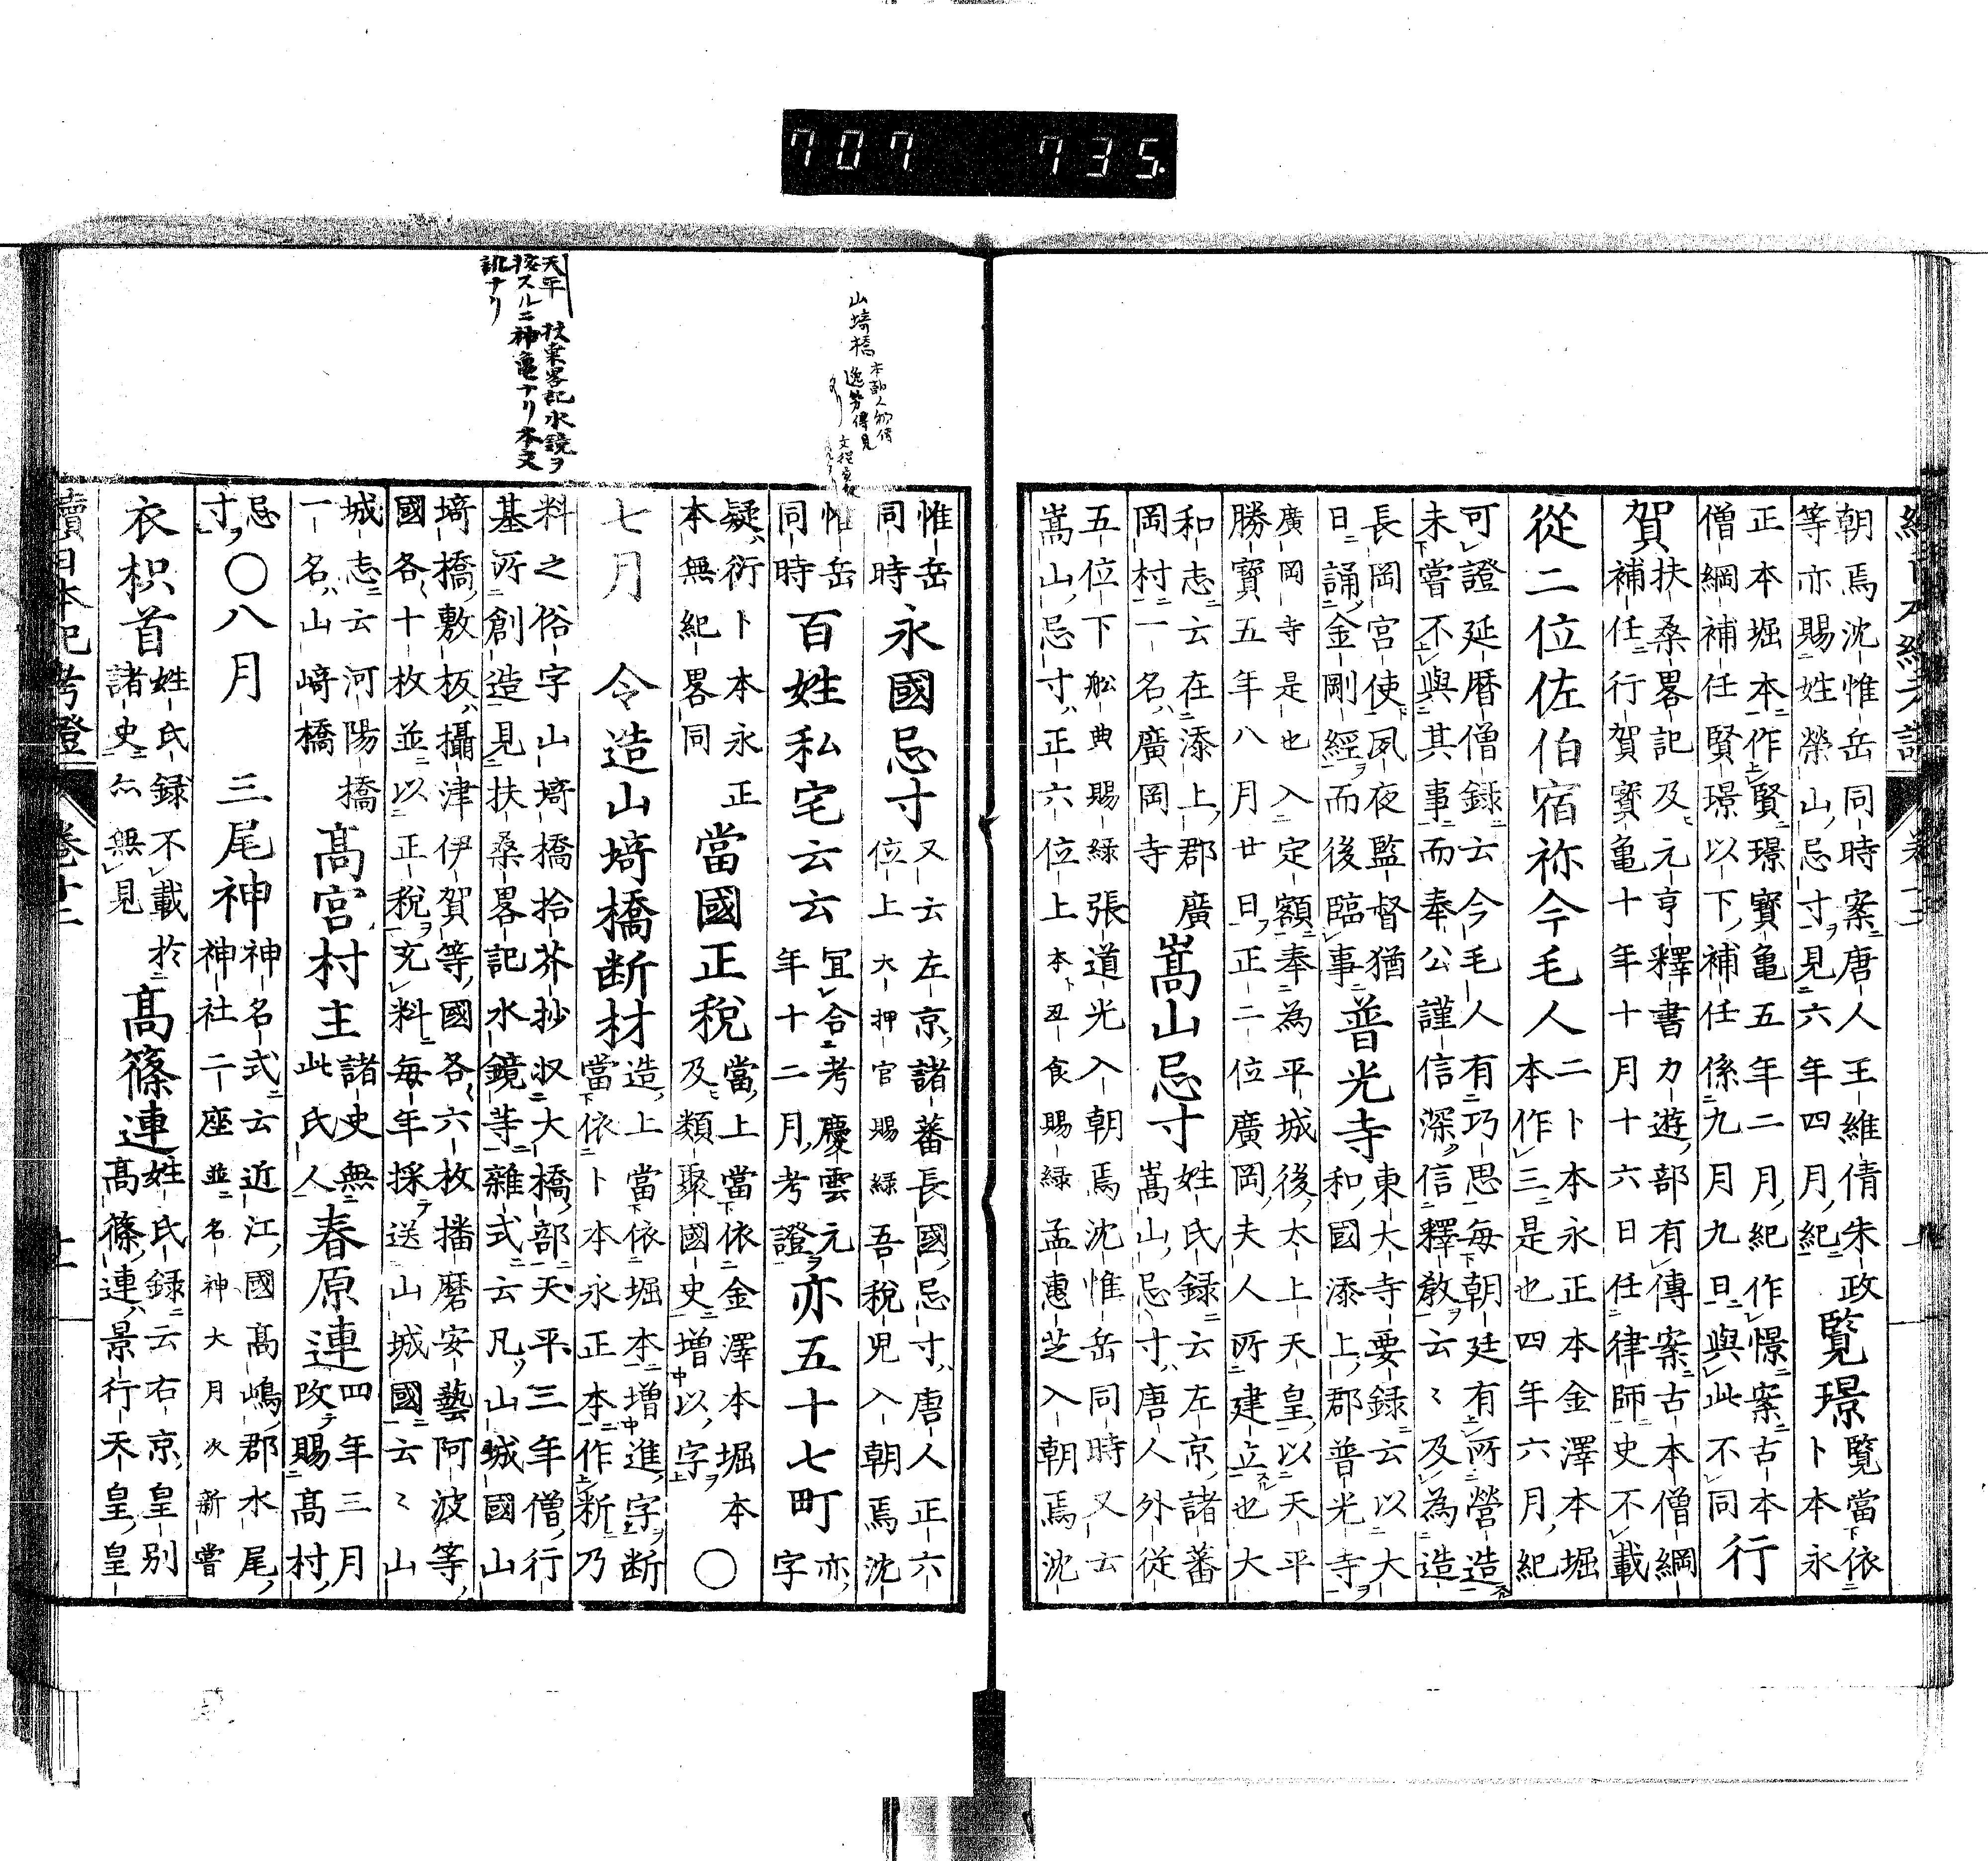 707 735.
朝焉沈惟岳同時案唐人王維倩朱政
等亦賜姓榮山忌寸見六年四月紀
覽璟
覽當依
卜本永
正本堀本作賢璟寶龜五年二月紀作憬案古本
僧綱補任賢璟以下補任係九月九日與此不同
行
賀
扶桑畧記及元亨釋書力遊部有傳案古本僧綱
補任行賀寶龜十年十月十六日任律師史不載
從二位佐伯宿祢今毛人
二卜本永正本金澤本堀
本作三是也四年六月紀
可證延曆僧錄云今毛人有巧思每朝廷有所營造
未嘗不與其事而奉公謹信深信釋教云〻及為造
長岡宮使夙夜監督猶
日誦金剛經而後臨事
普光寺
東大寺要錄云以大
和國添上郡普光寺
廣岡寺是也入定額奉為平城後太上天皇以天平
勝寶五年八月廿日正二位廣岡夫人所建立也大
和志云在添上郡廣
岡村一名廣岡寺
嵩山忌寸
姓氏錄云左京諸蕃
嵩山忌寸唐人外從
五位下舩典賜綠張道光入朝焉沈惟岳同時又云
嵩山忌寸正六位上本丑食賜綠孟惠芝入朝焉沈
惟岳
同時
永國忌寸
又云左京諸蕃長國忌寸唐人正六
位上大押官賜綠吾稅兒入朝焉沈
惟岳
同時
百姓私宅云云
宜合考慶雲元
年十二月考證
亦五十七町
亦
字
疑衍卜本永正
本無紀畧同
當國正稅
當上當依金澤本堀本
及類聚國史增以字
○
七月
令造山埼橋断材
造上當依堀本增進字断
當依卜本永正本作斵乃
料之俗字山埼橋拾芥抄収大橋部天平三年僧行
基所創造見扶桑畧記水鏡等雜式云凡山城國山
埼橋敷板攝津伊賀等國各六枚播磨安藝阿波等
國各十枚並以正稅充料每年採送山城國云〻山
城志云河陽橋
一名山﨑橋
髙宮村主
諸史無
此氏人
春原連
四年三月
改賜髙村
忌
寸
○八月
三尾神
神名式云近江國髙嶋郡水尾
神社二座並名神大月次新嘗
衣枳首
姓氏錄不載於
諸史亦無見
髙篠連
姓氏錄云右京皇別
髙篠連景行天皇皇
山埼橋
天平
扶桑畧記水鏡ヲ
按スルニ神龜ナリ本文
訛ナリ
續日本紀考證
卷十二